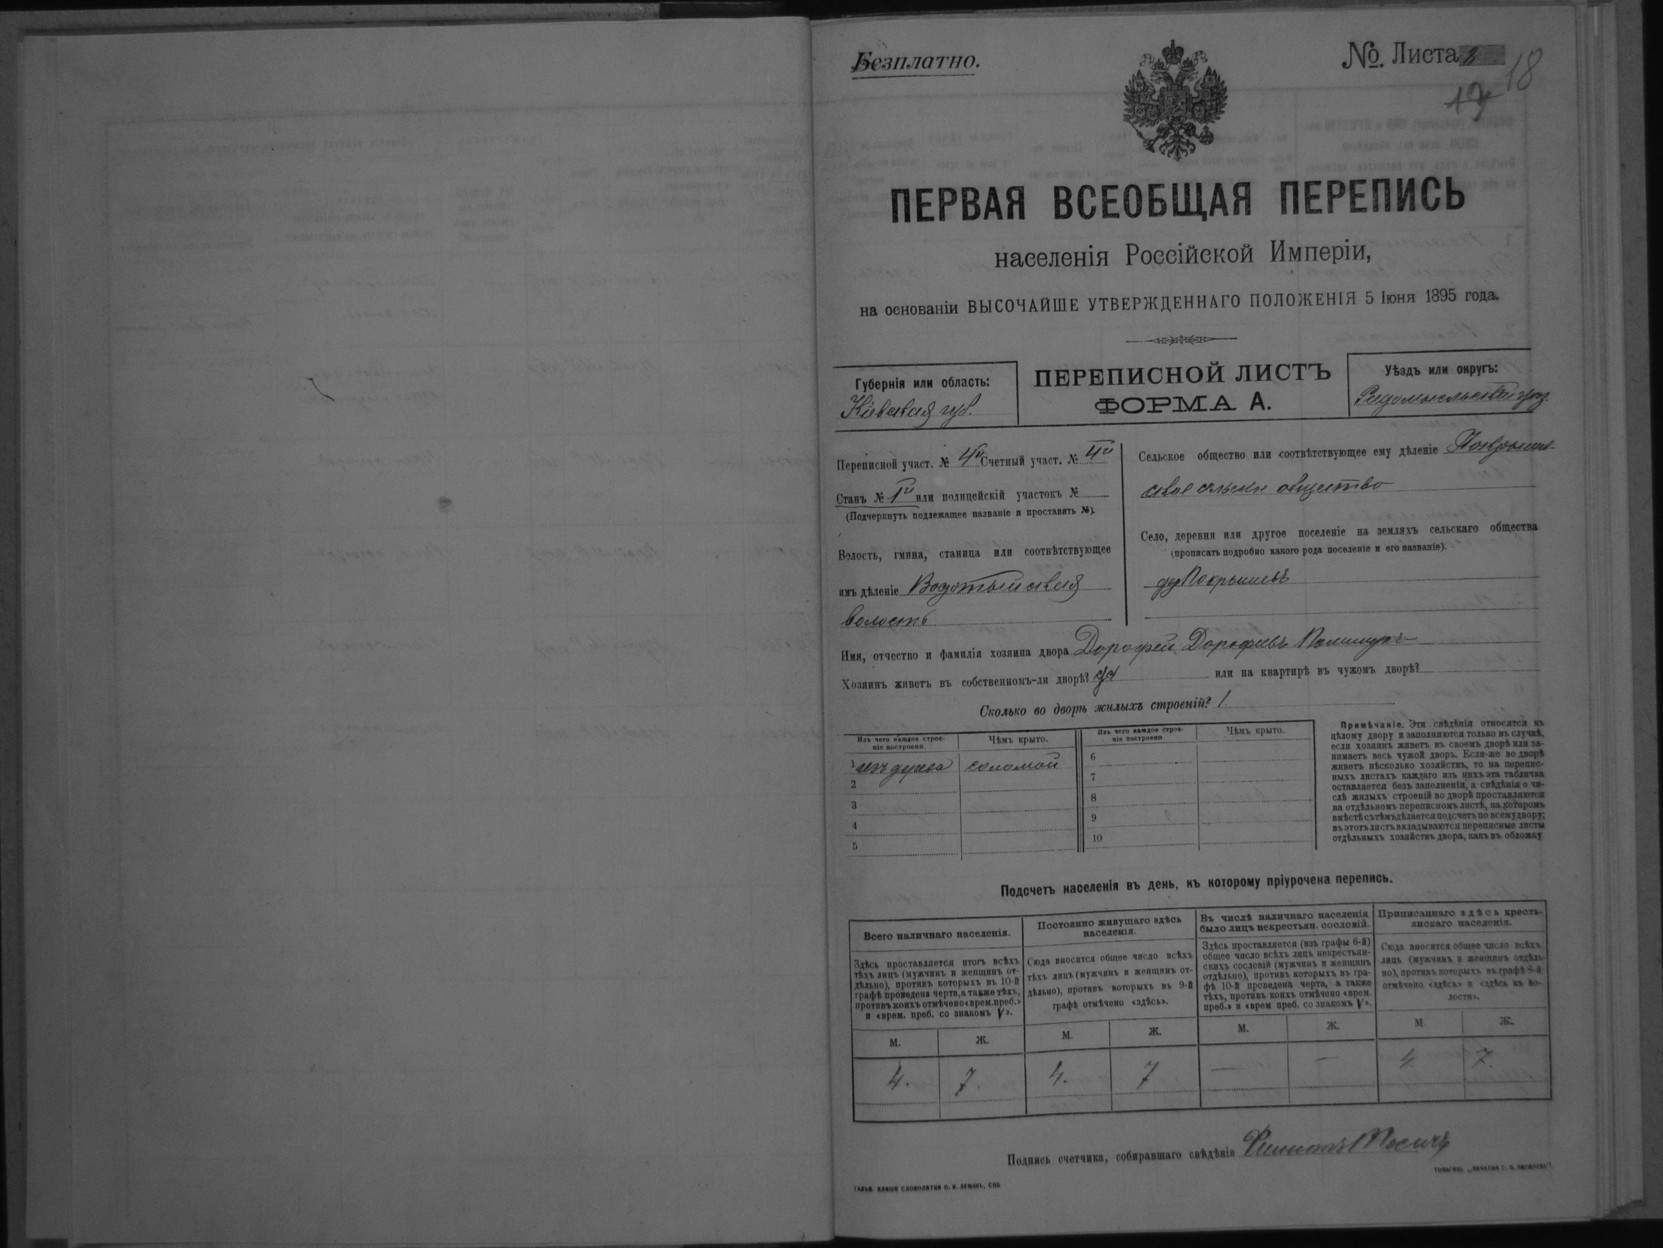 Безплатно.
№. Листа
18
ПЕРВАЯ ВСЕОБЩАЯ ПЕРЕПИСЬ
населенія Россійской Имперіи,
на основаніи ВЫСОЧАЙШЕ УТВЕРЖДЕННАГО ПОЛОЖЕНІЯ 5 Іюня 1895 года.
Губернія или область:
Кіевская губ.
ПЕРЕПИСНОЙ ЛИСТЪ
ФОРМА А.
Уѣздъ или округъ:
Переписной участ. № 4й Счетный участ. № 4й
Станъ № 1й или полицейскій участокъ №
(Подчеркнуть подлежащее названіе и проставить №).
Волость, гмина, станица или соотвѣтствующее
имъ дѣленіе Водотыйская
волость
Сельское общество или соотвѣтствующее ему дѣленіе
общество
Село, деревня или другое поселеніе на земляхъ сельскаго общества
(прописать подробно какого рода поселеніе и его названіе).
Имя, отчество и фамилія хозяина двора Дорофей Дорофеевъ Полищукъ
Хозяинъ живетъ въ собственномъ-ли дворѣ? да или на квартирѣ въ чужомъ дворѣ?
Сколько во дворѣ жилыхъ строеній? 1
Изъ чего каждое строе-
ніе построено.
Чѣмъ крыто.
Изъ чего каждое строе-
ніе построено.
Чѣмъ крыто.
1 изъ дерева соломой
2
3
4
5
6
7
8
9
10
Примѣчаніе. Эти свѣдѣнія относятся къ
цѣлому двору и заполняются только въ случаѣ,
если хозяинъ живетъ въ своемъ дворѣ или за-
нимаетъ весь чужой дворъ. Если-же во дворѣ
живетъ нѣсколько хозяйствъ, то на перепис-
ныхъ листахъ каждаго изъ нихъ эта табличка
оставляется безъ заполненія, а свѣдѣнія о чи-
слѣ жилыхъ строеній во дворѣ проставляются
на отдѣльномъ переписномъ листѣ, на которомъ
вмѣстѣ съ тѣмъ дѣлается подсчетъ по всему двору;
въ этотъ листъ вкладываются переписные листы
отдѣльныхъ хозяйствъ двора, какъ въ обложку
Подсчетъ населенія въ день, къ которому пріурочена перепись.
Всего наличнаго населенія.
Здѣсь проставляется итогъ всѣхъ
тѣхъ лицъ (мужчинъ и женщинъ от-
дѣльно), противъ которыхъ въ 10-й
графѣ проведена черта, а также тѣхъ,
противъ коихъ отмѣчено «врем. преб.»
и «врем. преб. со знакомъ V».
Постоянно живущаго здѣсь
населенія.
Сюда вносится общее число всѣхъ
тѣхъ лицъ (мужчинъ и женщинъ от-
дѣльно), противъ которыхъ въ 9-й
графѣ отмѣчено «здѣсь».
Въ числѣ наличнаго населенія
было лицъ некрестьян. сословій.
Здѣсь проставляется (изъ графы 6-й)
общее число всѣхъ лицъ некрестьян-
скихъ сословій (мужчинъ и женщинъ
отдѣльно), противъ которыхъ въ гра-
фѣ 10-й проведена черта, а также
тѣхъ, противъ коихъ отмѣчено «врем.
преб.» и «врем преб. со знакомъ V».
Приписаннаго здѣсь кресть-
янскаго населенія.
Сюда вносится общее число всѣхъ
лицъ (мужчинъ и женщинъ отдѣль-
но), противъ которыхъ въ графѣ 8-й
отмѣчено «здѣсь» и «здѣсь въ во-
лости».
М. Ж. М. Ж. М. Ж. М. Ж.
4. 7. 4. 7 — — 4 7.
Подпись счетчика, собиравшаго свѣдѣнія